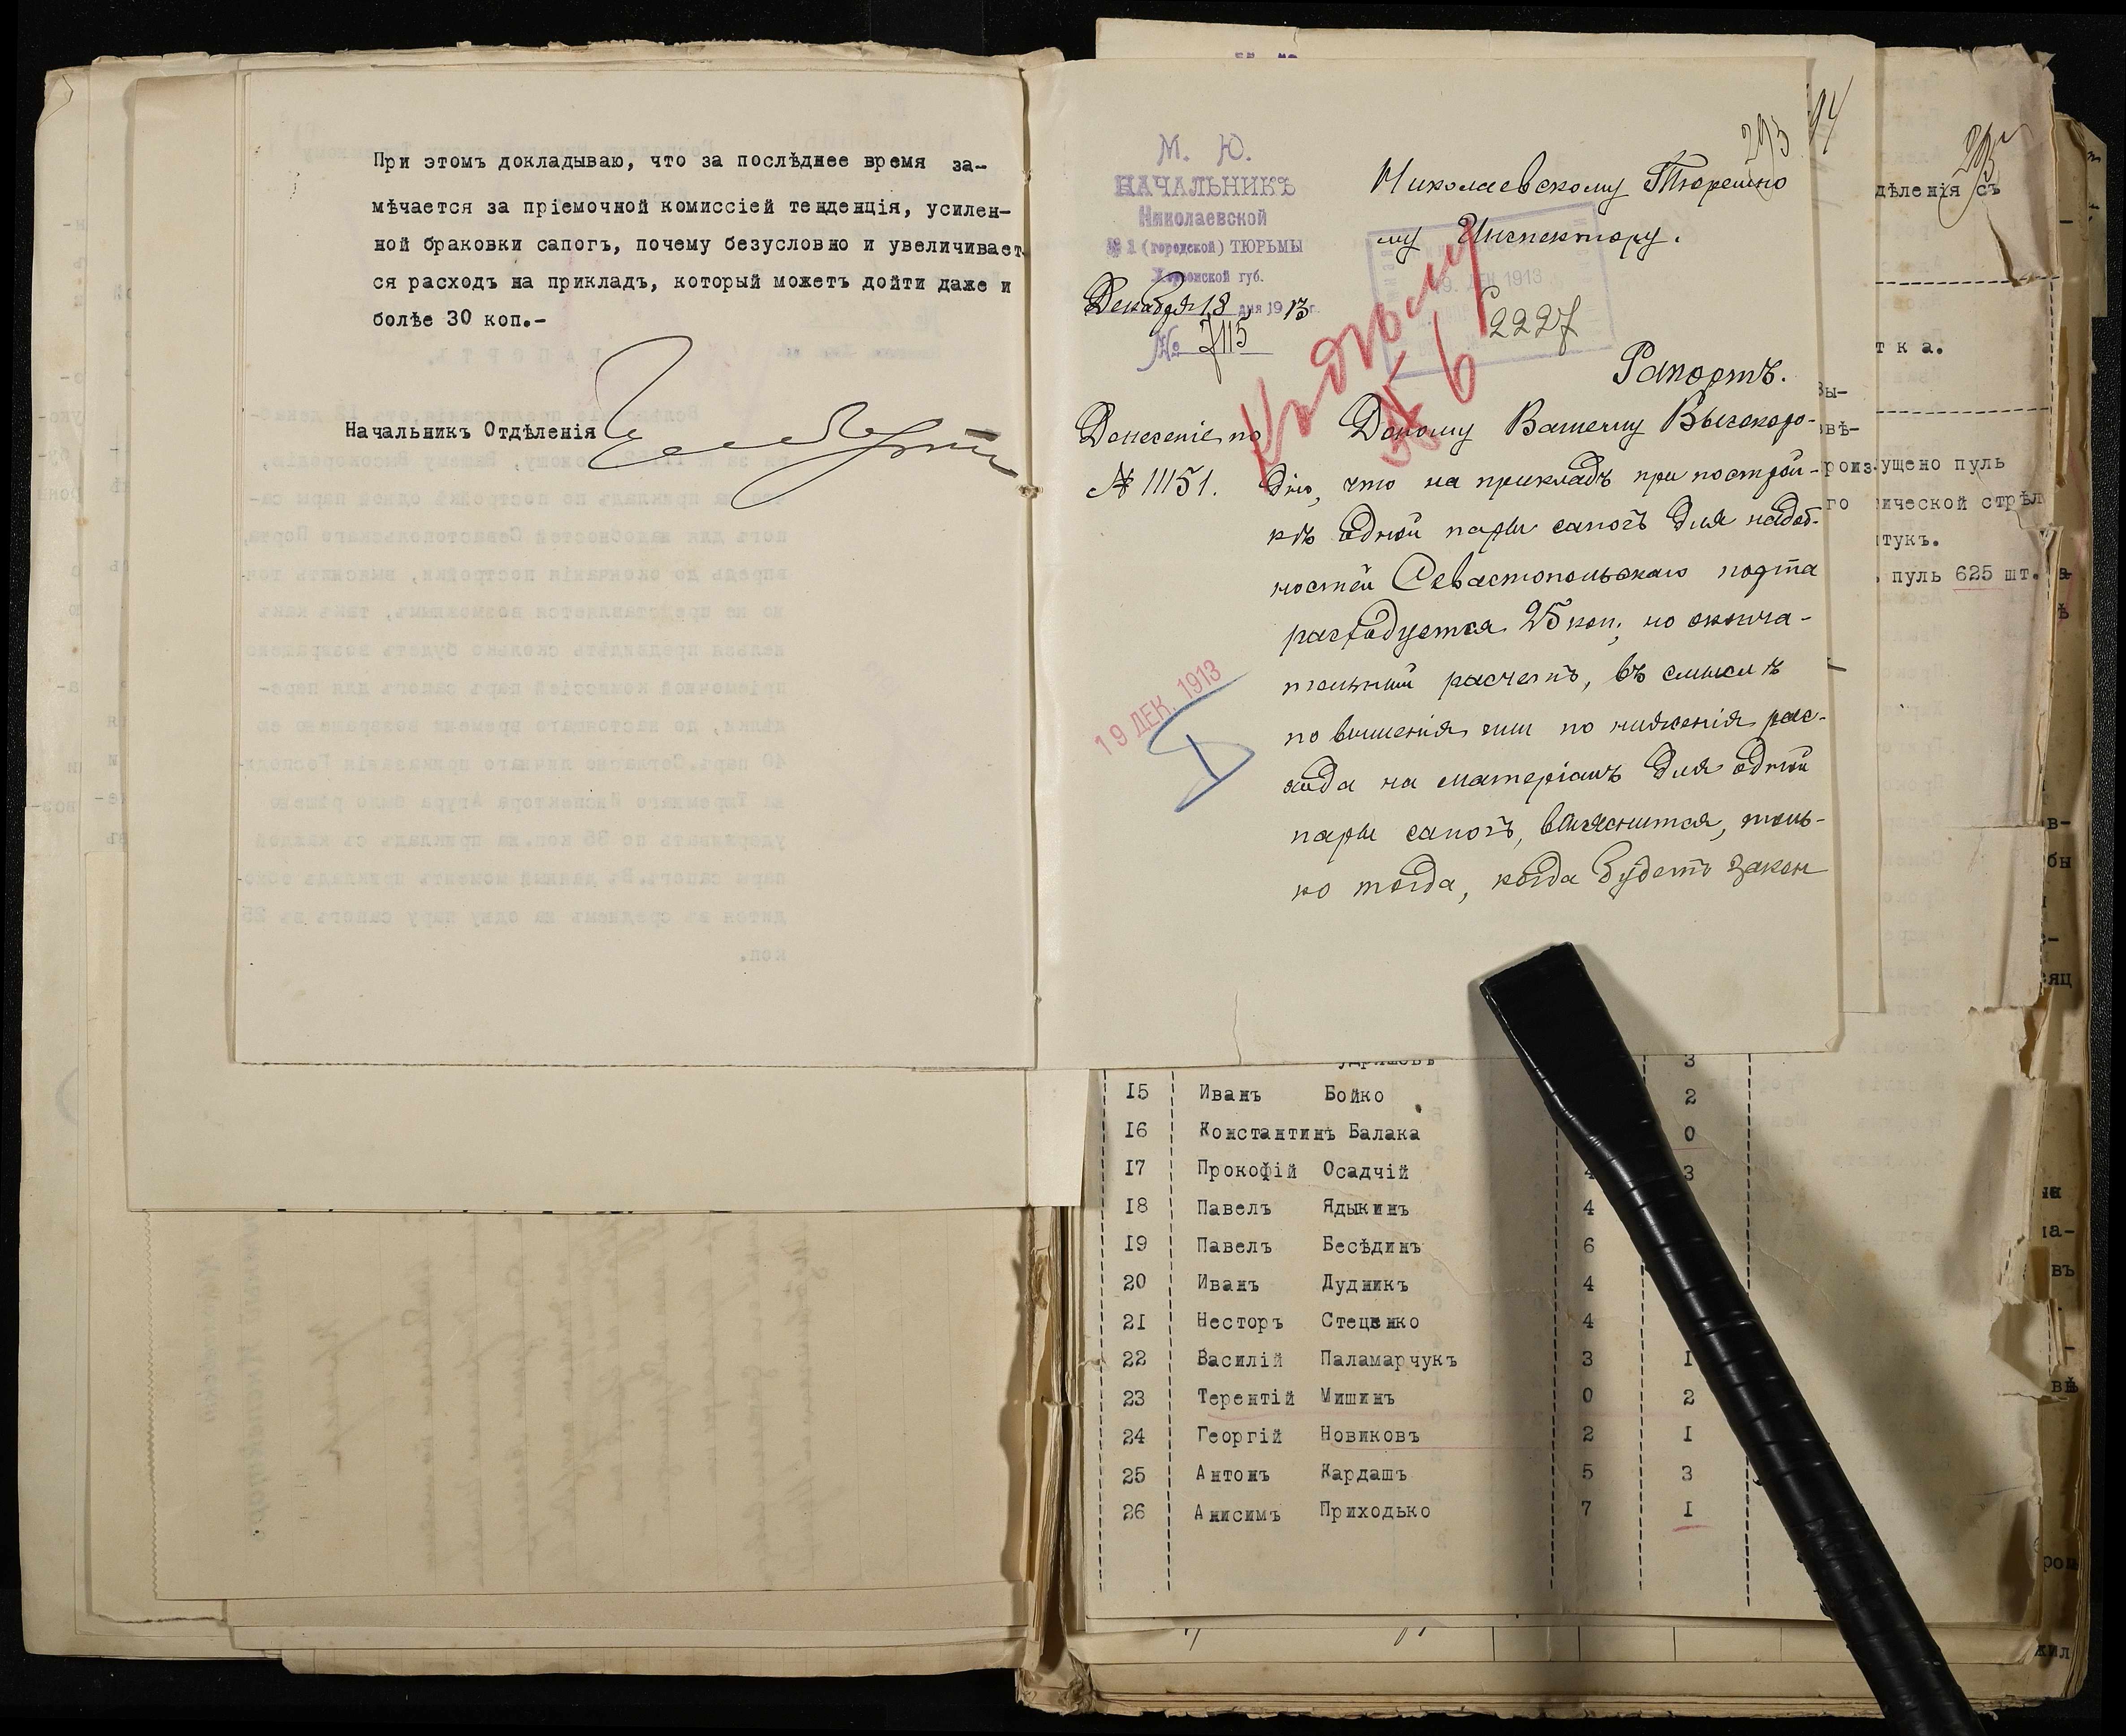 При этомъ докладываю, что за послѣднее время за-
мѣчается за пріемочной комиссіей тенденція, усилен-
ной браковки сапогъ, почему безусловно и увеличивает
ся расходъ на прикладъ, который можетъ дойти даже и
болѣе 30 коп.-
Начальникъ Отдѣленія
293
94
М. Ю.
НАЧАЛЬНИКЪ
Николаевской
№ 1 (городской) ТЮРЬМЫ
Херсонской губ.
Декабря 18 дня 1913 г.
№ 7115
Николаевскому Тюремно
му Инспектору.
19. ДЕК 1913
2227
Къ дѣлу
№ 61
Рапортъ.
Донесеніе по
№ 11151.
Доношу Вашему Высокоро-
дію, что на прикладъ при построй-
кѣ одной пары сапогъ для надоб-
ностей Севастопольскаго порта
расходуется 25 коп., но оконча-
тельный расчетъ, въ смыслѣ
повышенія или пониженія рас-
хода на матеріалъ для одной
пары сапогъ, выяснится, толь-
ко тогда, когда будетъ закон
19 ДЕК. 1913
дѣленія съ
т к а.
ущено пуль
ической стрѣл
тукъ.
пуль 625 шт.
3
15 Иванъ Бойко 2
16 Константинъ Балака 0
17 Прокофій Осадчій 4 3
18 Павелъ Ядыкинъ 4
19 Павелъ Бесѣдинъ 6
20 Иванъ Дудникъ 4
21 Несторъ Стеценко 4
22 Василій Паламарчукъ 3 I
23 Терентій Мишинъ 0 2
24 Георгій Новиковъ 2 I
25 Антонъ Кардашъ 5 3
26 Анисимъ Приходько 7 I